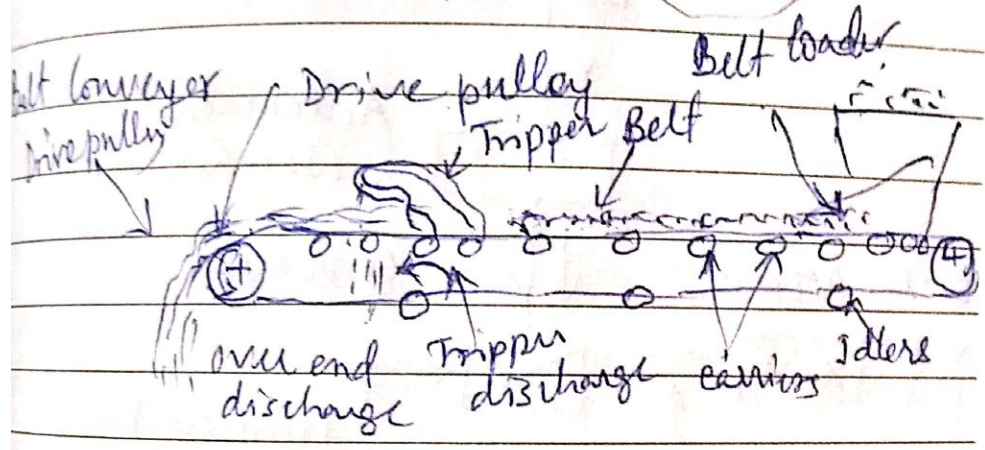 Belt loader
Belt Conveyer
Drive pulley
Drive pulley
Tripper
Belt
over end
discharge
Tripper
discharge
carriers
Idlers